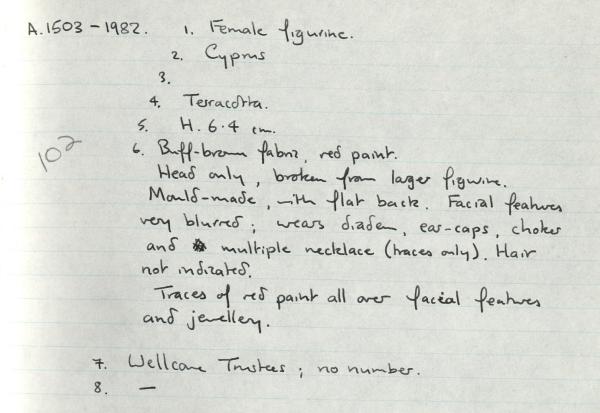 A.1503-1982. 1. Female figurine.
2. Cyprus
3.
4. Terracotta.
5. H. 6.4 cm.
102
6. Buff-brown fabric, red paint.
Head only, broken from larger figurine.
Mould-made, with flat back. Facial features
very blurred; wears diadem, ear-caps, choker
and multiple necklace (traces only). Hair
not indicated.
Traces of red paint all over facial features
and jewellery.
7. Wellcome Trustees; no number.
8. —